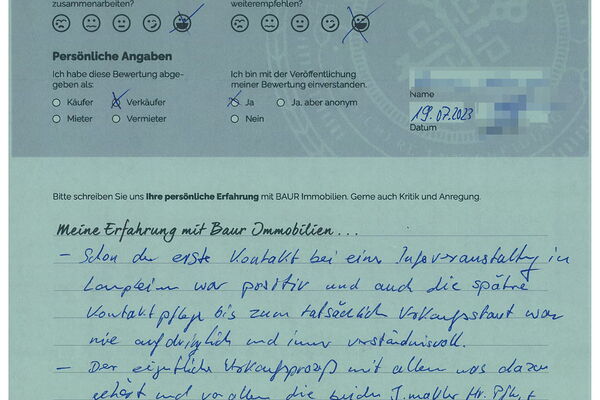 zusammenarbeiten?
weiterempfehlen?
Persönliche Angaben
Ich habe diese Bewertung abge-
geben als:
Käufer Verkäufer
Mieter Vermieter
Ich bin mit der Veröffentlichung
meiner Bewertung einverstanden.
Ja Ja, aber anonym
Nein
Name
19.07.2023
Datum
Bitte schreiben Sie uns Ihre persönliche Erfahrung mit BAUR Immobilien. Gerne auch Kritik und Anregung.
Meine Erfahrung mit Baur Immobilien ...
- Schon der erste Kontakt bei einer Infoveranstaltung in
war positiv und auch die spätre
Kontaktpflege bis zum tatsächlich Verkaufsstart war
nie aufdringlich und immer verständnisvoll.
- Der eigentliche Verkaufsprozeß mit allem was dazu
gehört und vor allem die beiden